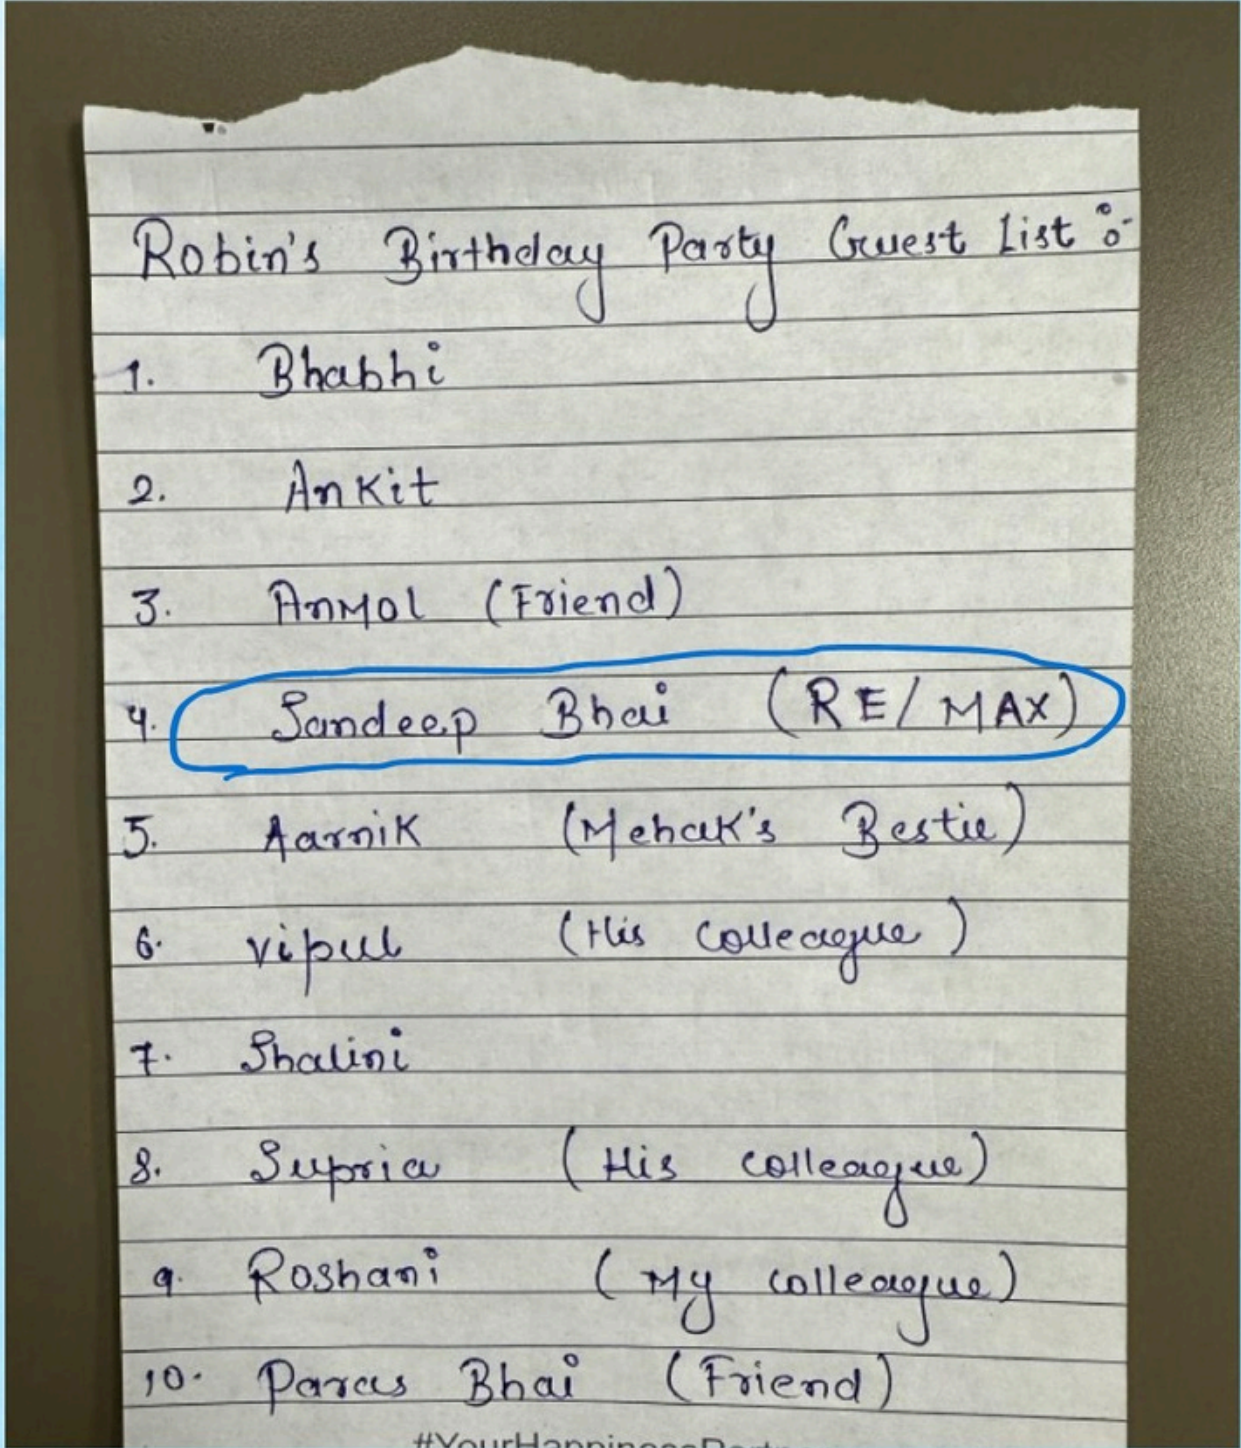 Robin's Birthday Party Guest List :-
1. Bhabhi
2. Ankit
3. Anmol (Friend)
4. Sandeep Bhai (RE/MAX)
5. Aarnik (Mehak's Bestie)
6. Vipul (His colleague)
7. Shalini
8. Supria (His colleague)
9. Roshani (My colleague)
10. Paras Bhai (Friend)